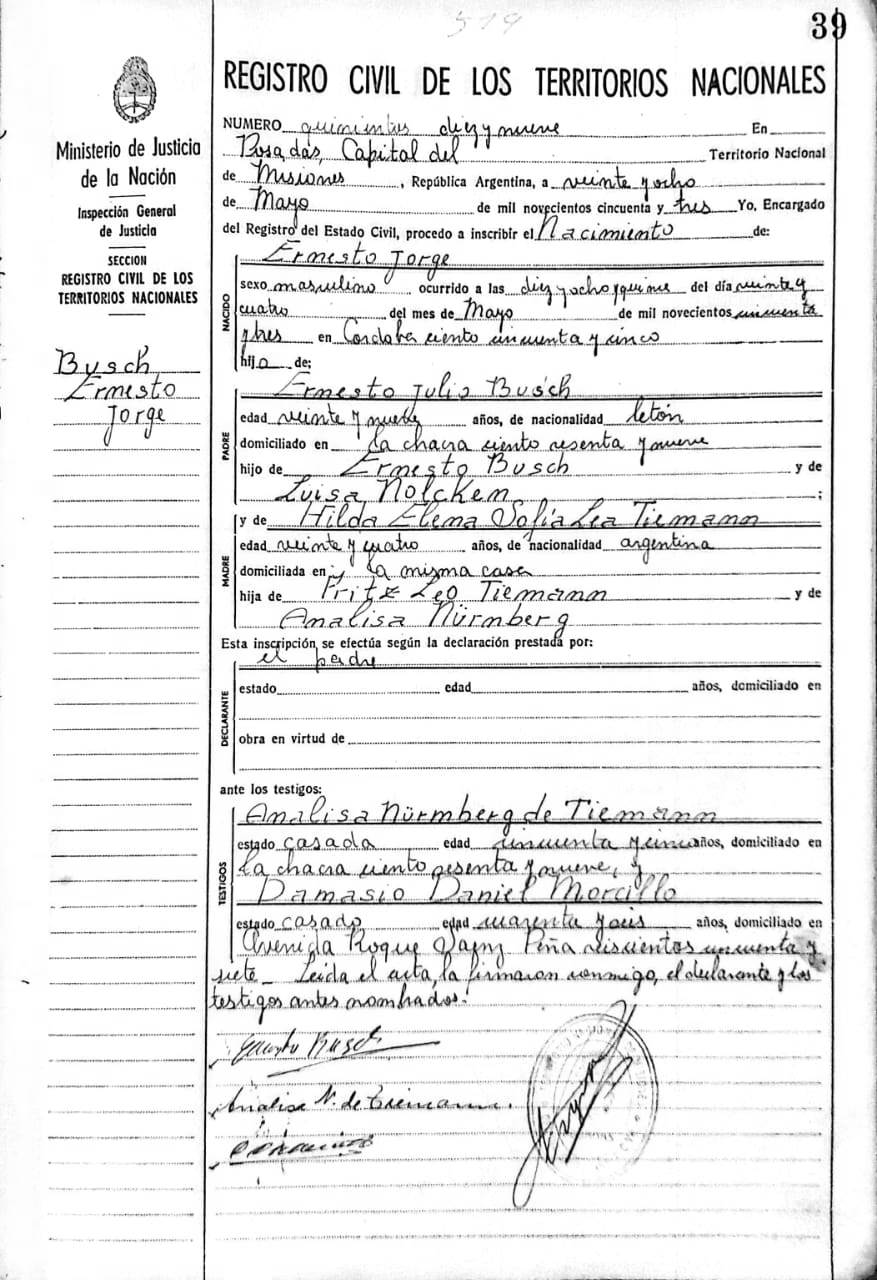 519
39
Ministerio de Justicia
de la Nación
Inspección General
de Justicia
SECCION
REGISTRO CIVIL DE LOS
TERRITORIOS NACIONALES
Busch
Ernesto
Jorge
REGISTRO CIVIL DE LOS TERRITORIOS NACIONALES
NUMERO quinientos diez y nueve En
Posadas, Capital del Territorio Nacional
de Misiones, República Argentina, a veinte y ocho
de Mayo de mil novecientos cincuenta y tres Yo, Encargado
del Registro del Estado Civil, procedo a inscribir el Nacimiento de:
NACIDO
Ernesto Jorge
sexo masculino ocurrido a las diez y ocho y quince del día veinte y
cuatro del mes de Mayo de mil novecientos cincuenta
y tres en Cordoba ciento cincuenta y cinco
hijo de:
PADRE
Ernesto Julio Busch
edad veinte y nueve años, de nacionalidad letón
domiciliado en la chacra ciento sesenta y nueve
hijo de Ernesto Busch y de
Luisa Nolcken ;
MADRE
y de Hilda Elena Sofía Lea Tiemann
edad veinte y cuatro años, de nacionalidad argentina
domiciliada en la misma casa
hija de Fritz Leo Tiemann y de
Analisa Nürmberg
Esta inscripción se efectúa según la declaración prestada por:
DECLARANTE
el padre
estado edad años, domiciliado en
obra en virtud de
ante los testigos:
TESTIGOS
Analisa Nürmberg de Tiemann
estado casada edad cincuenta y cinco años, domiciliado en
La chacra ciento sesenta y nueve, y
Damasio Daniel Morcillo
estado casado edad cuarenta y seis años, domiciliado en
Avenida Roque Saenz Peña seiscientos cincuenta y
siete _ Leída el acta, la firmaron conmigo, el declarante y los
testigos antes nombrados.
Ernesto Busch
Analise N. de Tiemann.